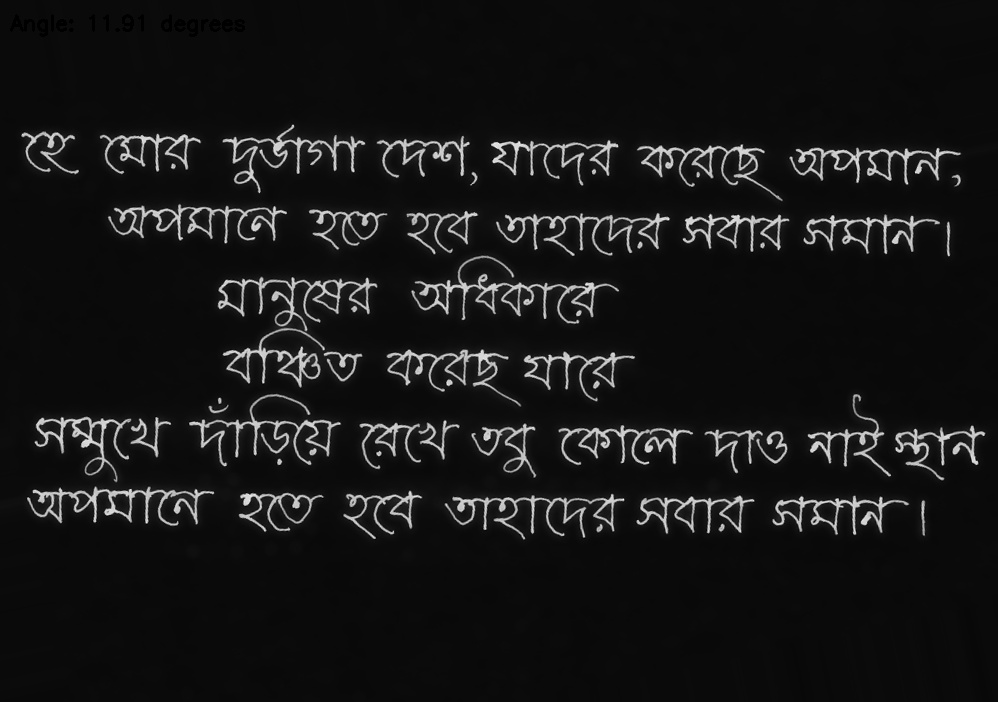 Angle: 11.91 degrees
হে মোর দুর্ভাগা দেশ, যাদের করেছে অপমান,
অপমানে হতে হবে তাহাদের সবার সমান।
মানুষের অধিকারে
বঞ্চিত করেছ যারে
সম্মুখে দাঁড়িয়ে রেখে তবু কোলে দাও নাই স্থান
অপমানে হতে হবে তাহাদের সবার সমান।